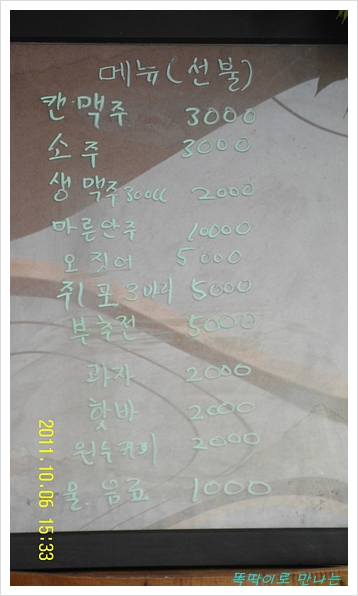 메뉴(선불)
캔·맥주 3000
소주 3000
생맥주 300cc 2000
마른안주 10000
오징어 5000
쥐포 3마리 5000
부추전 5000
과자 2000
핫바 2000
원두커피 2000
물.음료 1000
2011.10.06 15:33
똑딱이로 만나는